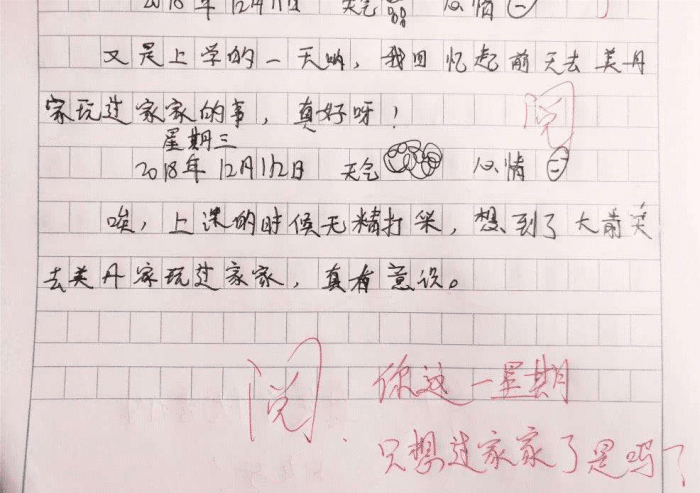 2018年12月11日 天气 心情
又是上学的一天呐，我回忆起前天去美丹
家玩过家家的事，真好呀！
阅
星期三
2018年12月12日 天气 心情
唉，上课的时候无精打采，想到了大前天
去美丹家玩过家家，真有意识。
阅
你这一星期
只想过家家了是吗？